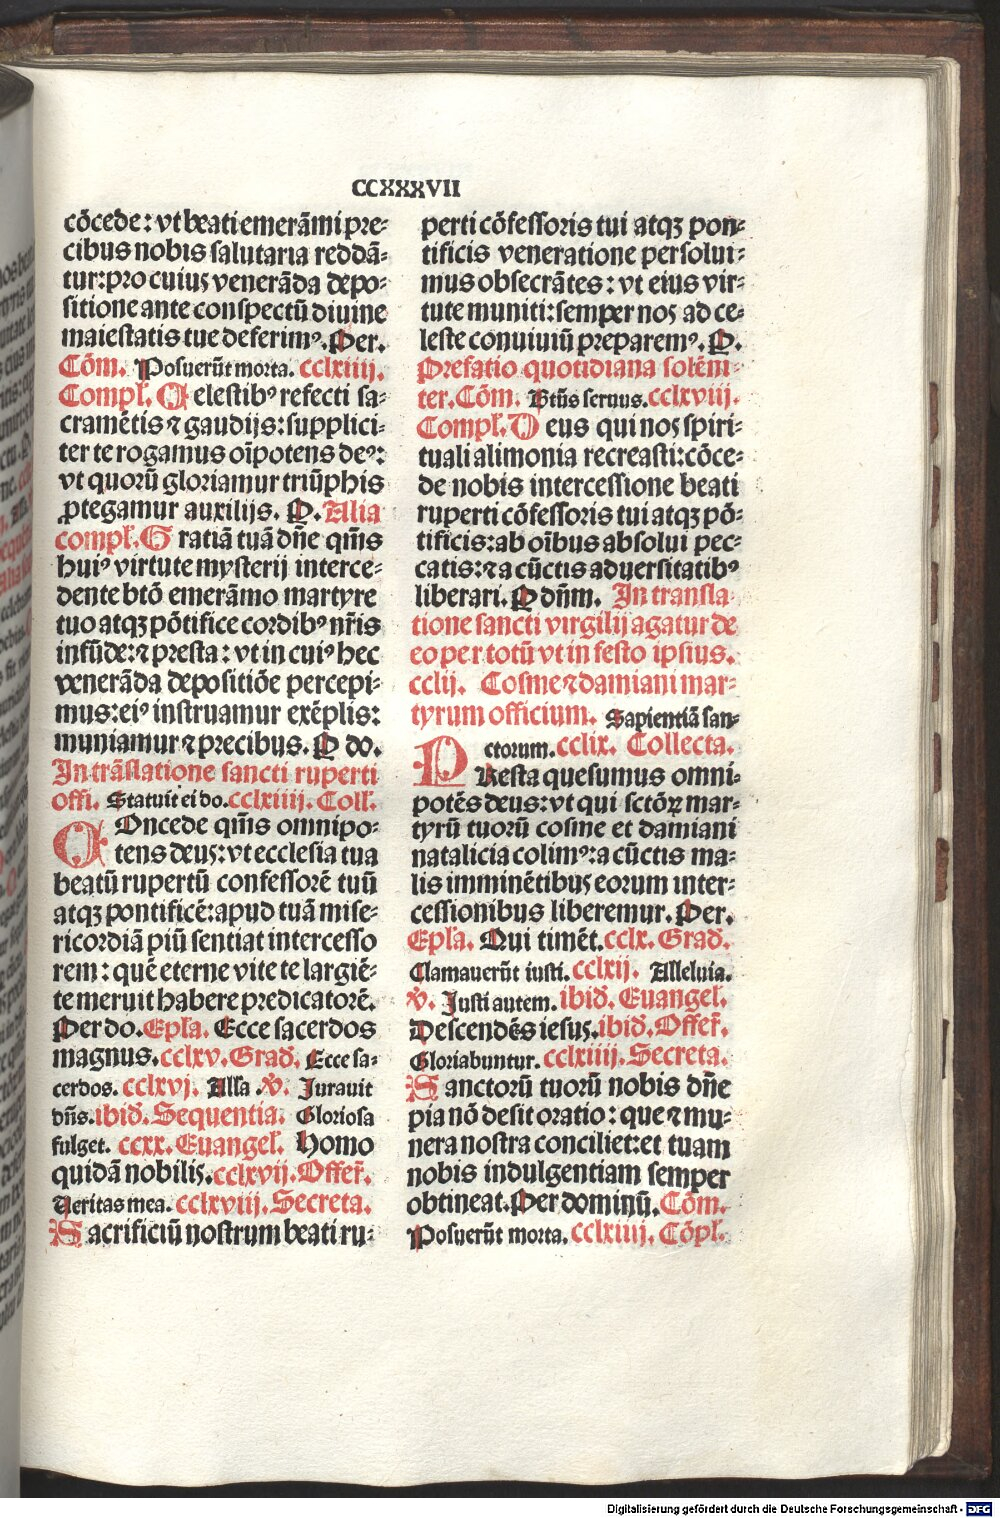 CCXXXVII
cōcede: vt beati emerāmi pre-
cibus nobis salutaria reddā-
tur: pro cuiꝰ venerāda depo-
sitione ante conspectū diuine
maiestatis tue deferimꝰ. Per.
Cōm. Posuerūt morta. cclxiiij.
Compl̄. Celestibꝰ refecti sa-
cramētis ⁊ gaudijs: supplici-
ter te rogamus oīpotens deꝰ:
vt quorū gloriamur triūphis
ꝓtegamur auxilijs. P. Alia
compl̄. Gratiā tuā dn̄e qm̄s
huiꝰ virtute mysterij interce-
dente btō emerāmo martyre
tuo atqꝫ pōtifice cordibꝰ nr̄is
infūde: ⁊ presta: vt in cuiꝰ hec
venerāda depositiōe percepi-
mus: eiꝰ instruamur exēplis:
muniamur ⁊ precibus. P do.
In trāslatione sancti ruperti
offi. Statuit ei do. cclxiiij. Coll̄.
COncede qm̄s omnipo-
tens deus: vt ecclesia tua
beatū rupertū confessorē tuū
atqꝫ pontificē: apud tuā mise-
ricordiā piū sentiat intercesso
rem: quē eterne vite te largiē-
te meruit habere predicatorē.
Per do. Epl̄a. Ecce sacerdos
magnus. cclxv. Grad̄. Ecce sa-
cerdos. cclxvj. Alla. v̄. Jurauit
dn̄s. ibid̄. Sequentia. Gloriosa
fulget. ccxx. Euangel̄. Homo
quidā nobilis. cclxvij. Offer̄.
Ueritas mea. cclxviij. Secreta.
Sacrificiū nostrum beati ru-
perti cōfessoris tui atqꝫ pon-
tificis veneratione persolui-
mus obsecrātes: vt eius vir-
tute muniti: semper nos ad ce-
leste conuiuiū preparemꝰ. P.
Prefatio quotidiana solēni-
ter. Cōm. Btūs seruus. cclxviij.
Compl̄. Deus qui nos spiri-
tuali alimonia recreasti: cōce-
de nobis intercessione beati
ruperti cōfessoris tui atqꝫ pō-
tificis: ab oībus absolui pec-
catis: ⁊ a cūctis aduersitatibꝰ
liberari. P dn̄m. In transla-
tione sancti virgilij agatur de
eo per totū vt in festo ipsius.
cclij. Cosme ⁊ damiani mar-
tyrum officium. Sapientiā san-
ctorum. cclix. Collecta.
PResta quesumus omni-
potēs deus: vt qui sctōꝝ mar-
tyrū tuorū cosme et damiani
natalicia colimꝰ: a cūctis ma-
lis imminētibus eorum inter-
cessionibus liberemur. Per.
Epl̄a. Qui timēt. cclx. Grad̄.
Clamauerūt iusti. cclxij. Alleluia.
v̄. Justi autem. ibid̄. Euangel̄.
Descendēs iesus. ibid̄. Offer̄.
Gloriabuntur. cclxiiij. Secreta.
Sanctorū tuorū nobis dn̄e
pia nō desit oratio: que ⁊ mu-
nera nostra conciliet: et tuam
nobis indulgentiam semper
obtineat. Per dominū. Cōm.
Posuerūt morta. cclxiiij. Cōpl̄.
Digitalisierung gefördert durch die Deutsche Forschungsgemeinschaft - DFG